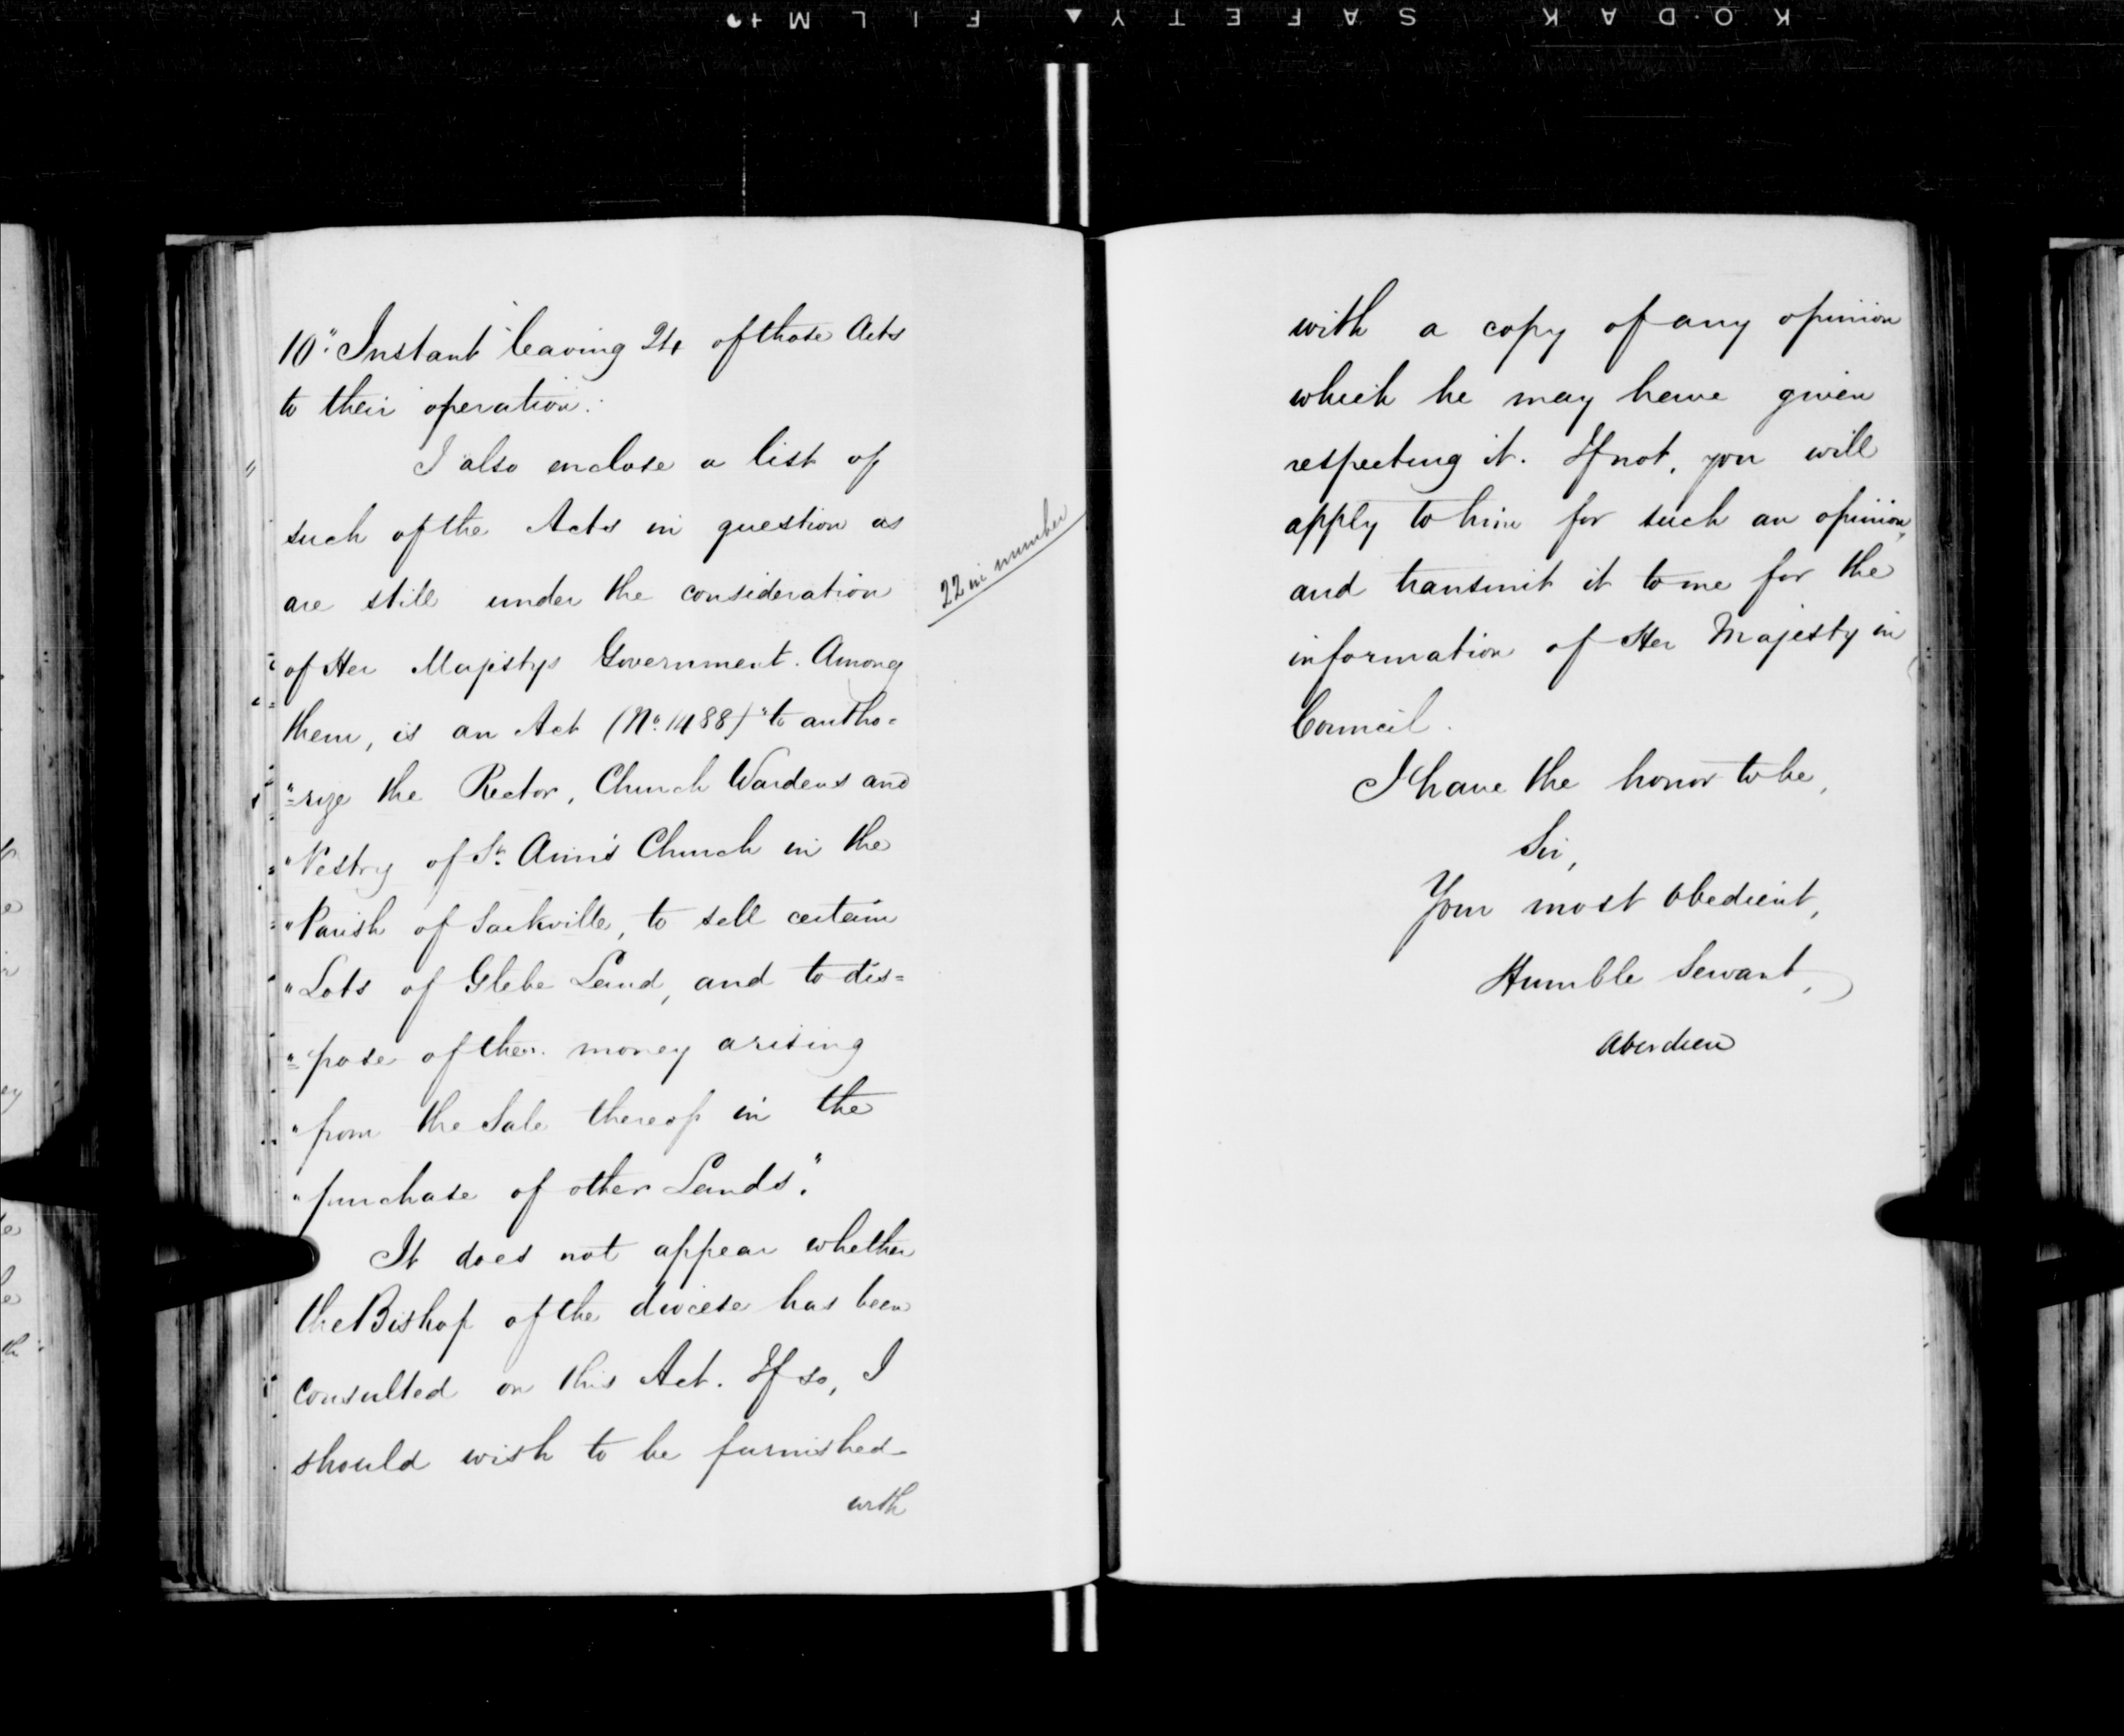 KODAK SAFETY FILM
10". Instant leaving 24 of those Acts
to their operation.
I also enclose a list of
such of the Acts in question as
are still under the consideration
of Her Majestys Government. Among
them, is an Act (No. 1488) "to autho=
"=rize the Rector, Church Wardens and
"Vestry of St. Ann's Church in the
"Parish of Sackville, to sell certain
"Lots of Glebe Land, and to dis=
"=pose of the money arising
"from the Sale thereof in the
"purchase of other Lands."
It does not appear whether
the Bishop of the diocese has been
consulted on this Act. If so, I
should wish to be furnished
with
22 in number
with a copy of any opinion
which he may have given
respecting it. If not, you will
apply to him for such an opinion,
and transmit it to me for the
information of Her Majesty in
Council.
I have the honor to be,
Sir,
Your most obedient,
Humble Servant,
Aberdeen